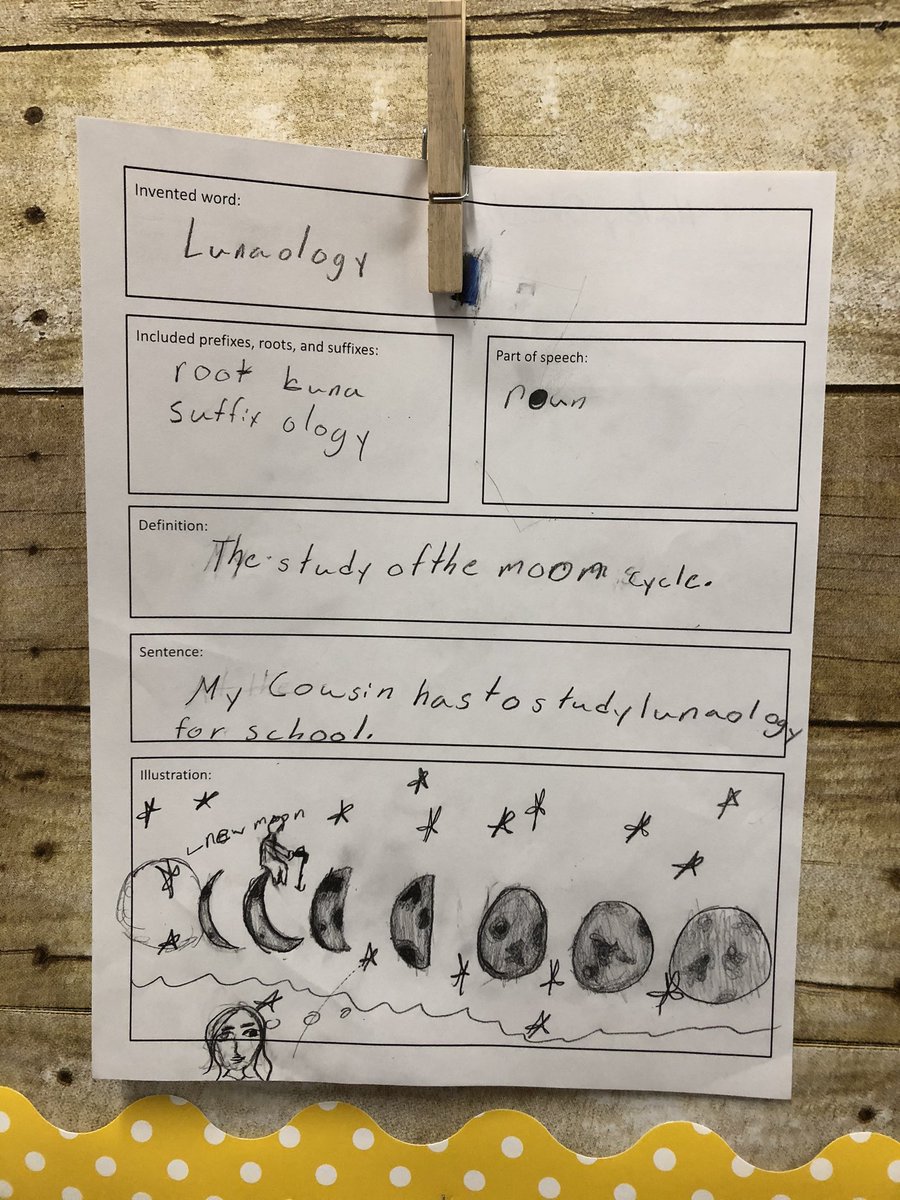 Invented word:
Lunaology
Included prefixes, roots, and suffixes:
root Luna
suffix ology
Part of speech:
noun
Definition:
The study of the moon cycle.
Sentence:
My Cousin has to study lunaology
for school.
Illustration:
new moon